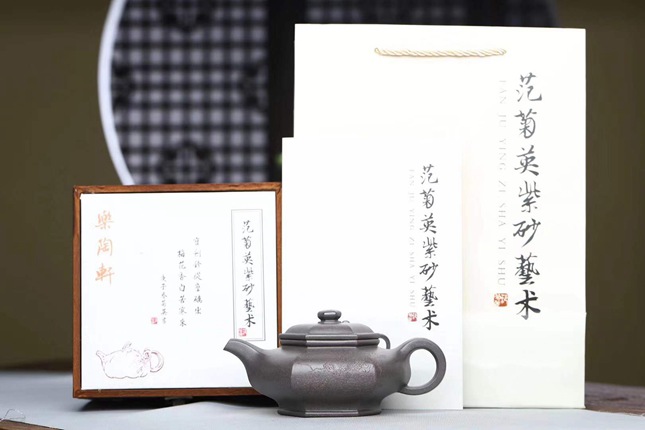 樂陶軒
范菊英紫砂藝术
梅花香自苦寒來
范菊英紫砂藝术
FAN JU YING ZI SHA YI SHU
范菊英紫砂藝术
FAN JU YING ZI SHA YI SHU